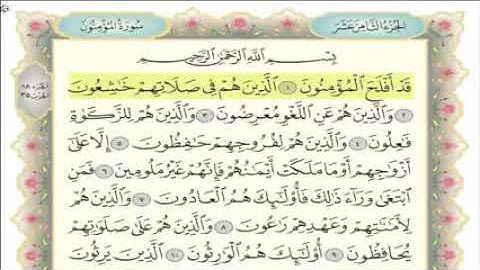 الجزء الثامن عشر
سورة المؤمنون
بِسْمِ ٱللَّهِ ٱلرَّحْمَٰنِ ٱلرَّحِيمِ
قَدْ أَفْلَحَ ٱلْمُؤْمِنُونَ ١ ٱلَّذِينَ هُمْ فِى صَلَاتِهِمْ خَٰشِعُونَ
٢ وَٱلَّذِينَ هُمْ عَنِ ٱللَّغْوِ مُعْرِضُونَ ٣ وَٱلَّذِينَ هُمْ لِلزَّكَوٰةِ
فَٰعِلُونَ ٤ وَٱلَّذِينَ هُمْ لِفُرُوجِهِمْ حَٰفِظُونَ ٥ إِلَّا عَلَىٰٓ
أَزْوَٰجِهِمْ أَوْ مَا مَلَكَتْ أَيْمَٰنُهُمْ فَإِنَّهُمْ غَيْرُ مَلُومِينَ ٦ فَمَنِ
ٱبْتَغَىٰ وَرَآءَ ذَٰلِكَ فَأُو۟لَٰٓئِكَ هُمُ ٱلْعَادُونَ ٧ وَٱلَّذِينَ هُمْ
لِأَمَٰنَٰتِهِمْ وَعَهْدِهِمْ رَٰعُونَ ٨ وَٱلَّذِينَ هُمْ عَلَىٰ صَلَوَٰتِهِمْ
يُحَافِظُونَ ٩ أُو۟لَٰٓئِكَ هُمُ ٱلْوَٰرِثُونَ ١٠ ٱلَّذِينَ يَرِثُونَ